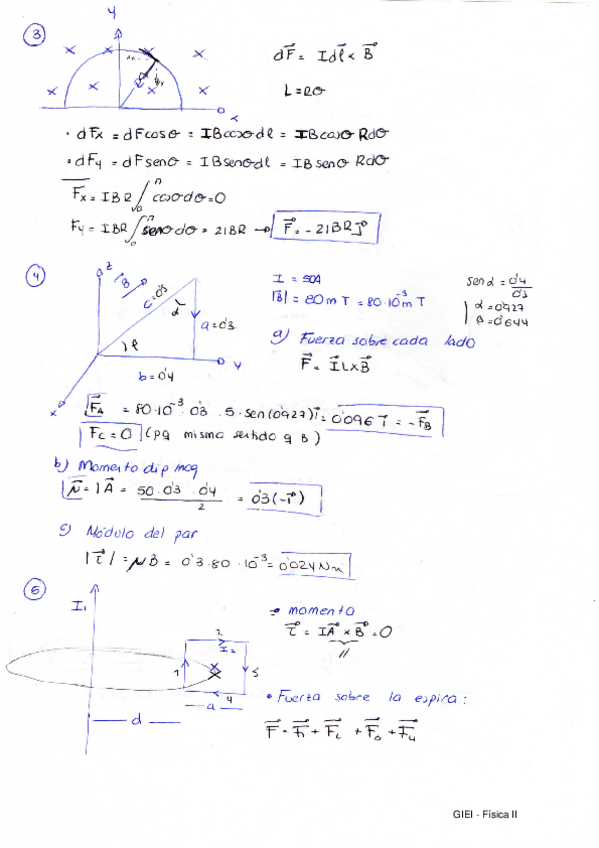 3
y
x
dF⃗ = I dl⃗ × B⃗
L = Rθ
· dFx = dF cosθ = IB cosθ dl = IB cosθ Rdθ
· dFy = dF senθ = IB senθ dl = IB senθ Rdθ
Fx = IBR ∫₀^π cosθ dθ = 0
Fy = IBR ∫₀^π senθ dθ = 2IBR → F⃗ = -2IBR j⃗
4
z
B⃗
c = 0'5
α
a = 0'3
β
y
b = 0'4
x
I = 50A
|B⃗| = 80 m T = 80·10⁻³ m T
sen α = 0'4/0'5
α = 0'927
β = 0'644
a) Fuerza sobre cada lado
F⃗ = I⃗L × B⃗
F⃗A = 80·10⁻³ · 0'3 · 5 · sen(0'927) i⃗ = 0'096 i⃗ = -F⃗B
Fc = 0 (pq mismo sentido q B)
b) Momento dip mag
μ⃗ = I A⃗ = 50·0'3·0'4 / 2 = 0'3 (-i⃗)
c) Módulo del par
|τ⃗| = μB = 0'3·80·10⁻³ = 0'024 Nm
I₁
2
I₂
1
4
a
d
momento
τ⃗ = IA⃗ × B⃗ = 0
//
• Fuerza sobre la espira:
GIEI - Física II